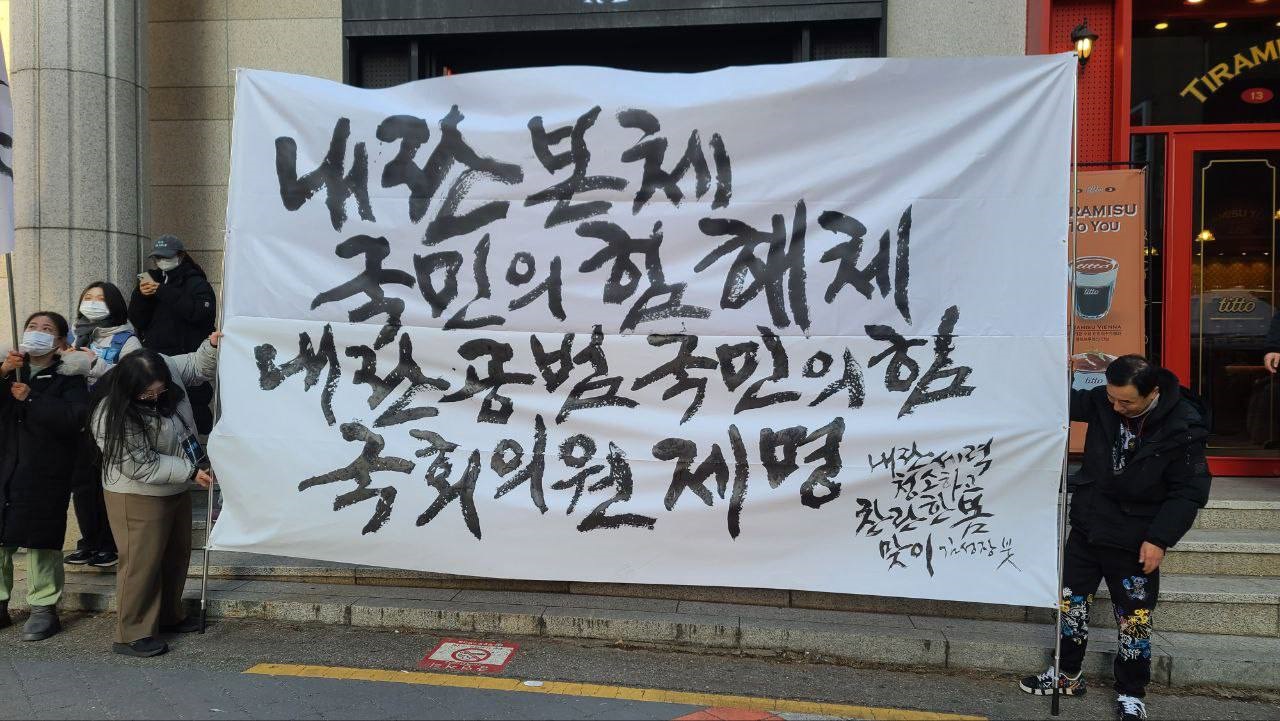 내란 본체
국민의힘 해체
내란 공범 국민의힘
국회의원 제명
내란 세력
청소하고
찬란한 봄
맞이 김성장 붓
TIRAMIS
13
titto
RAMISU
To You
titto
titto
RAMISU VIENNA